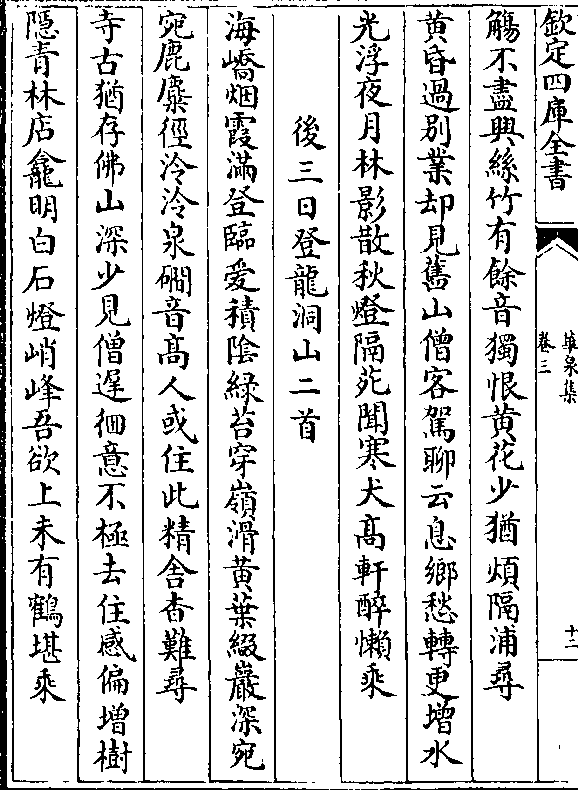 欽定四庫全書
華泉集
卷三
十二
觴不盡興絲竹有餘音獨恨黄花少猶煩隔浦尋
黄昏過别業却見舊山僧客駕聊云息鄉愁轉更增水
光浮夜月林影散秋燈隔苑聞寒犬髙軒醉懶乗
後三日登龍洞山二首
海嶠烟霞滿登臨愛積隂緑苔穿嶺滑黄葉綴巖深宛
宛鹿麋徑泠泠泉磵音髙人或住此精舍杳難尋
寺古猶存佛山深少見僧遲徊意不極去住感偏增樹
隠青林店龕明白石燈峭峰吾欲上未有鶴堪乗